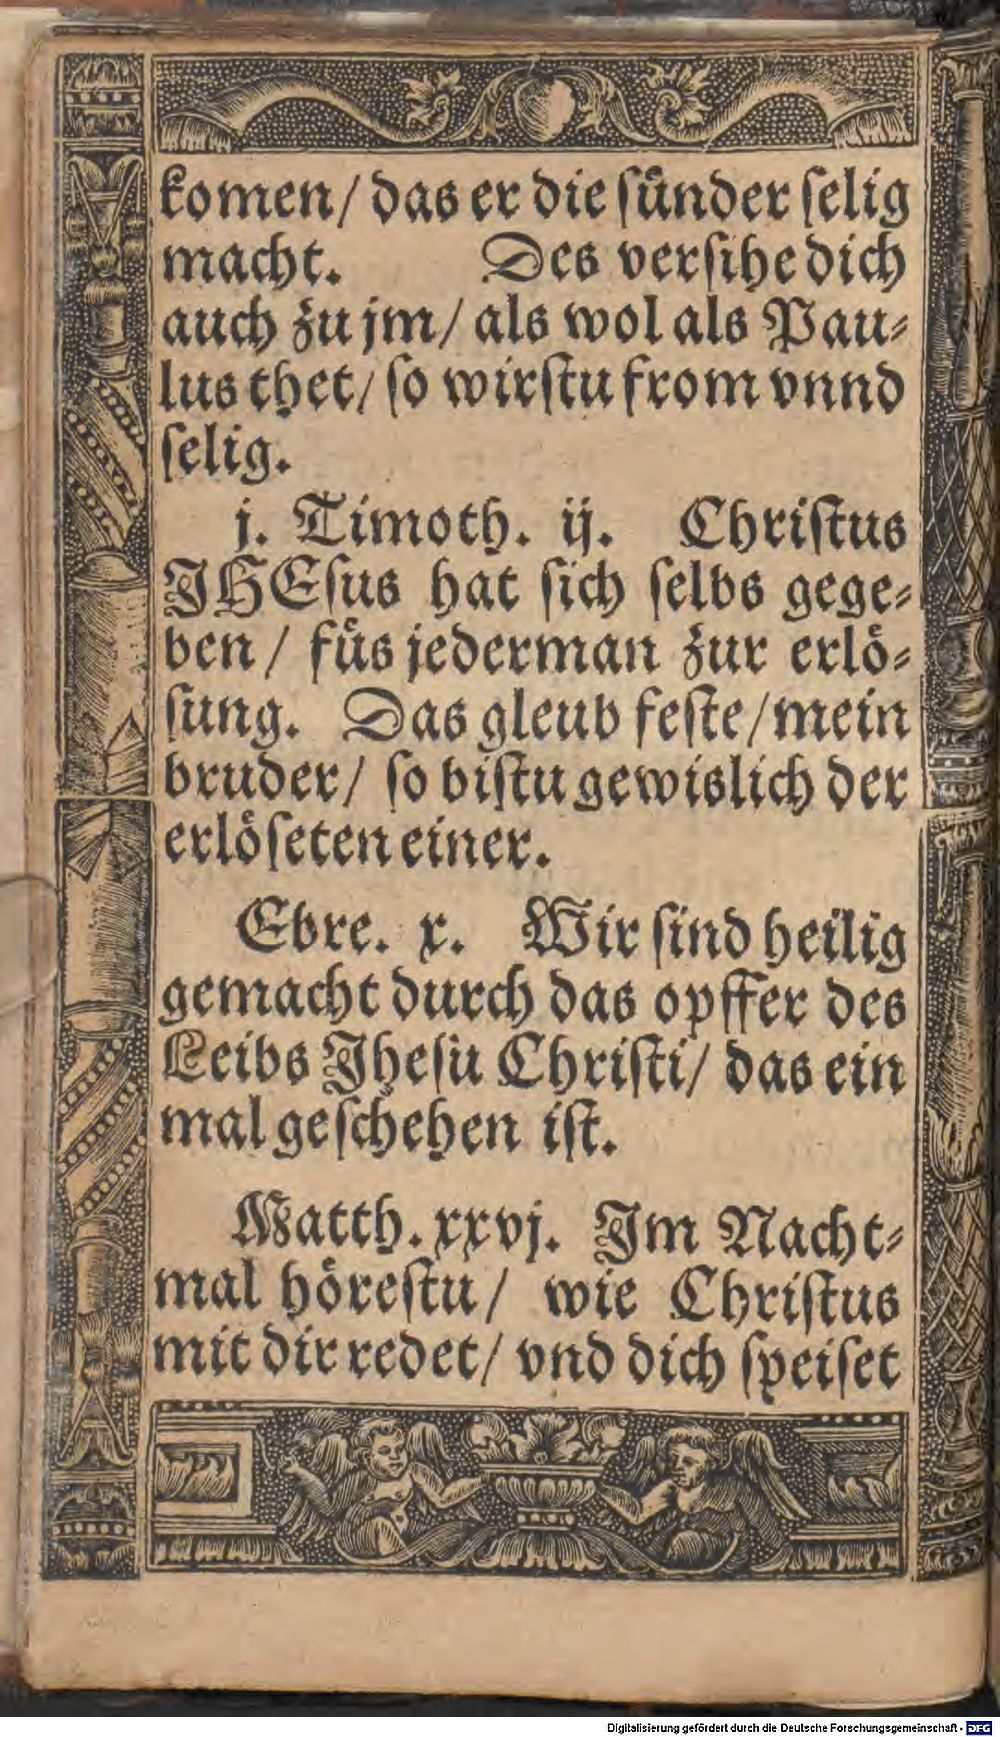 komen/ das er die ſuͤnder ſelig
macht. Des verſihe dich
auch zu jm/ als wol als Pau⸗
lus thet/ ſo wirſtu from vnnd
ſelig.
j. Timoth. ij. Chriſtus
JHEſus hat ſich ſelbs gege⸗
ben/ fuͤs jederman zur erloͤ⸗
ſung. Das gleub feſte/ mein
bruder/ ſo biſtu gewislich der
erloͤſeten einer.
Ebre. x. Wir ſind heilig
gemacht durch das opffer des
Leibs Jheſu Chriſti/ das ein
mal geſchehen iſt.
Matth. xxvj. Jm Nacht⸗
mal hoͤreſtu/ wie Chriſtus
mit dir redet/ vnd dich ſpeiſet
Digitalisierung gefördert durch die Deutsche Forschungsgemeinschaft - DFG